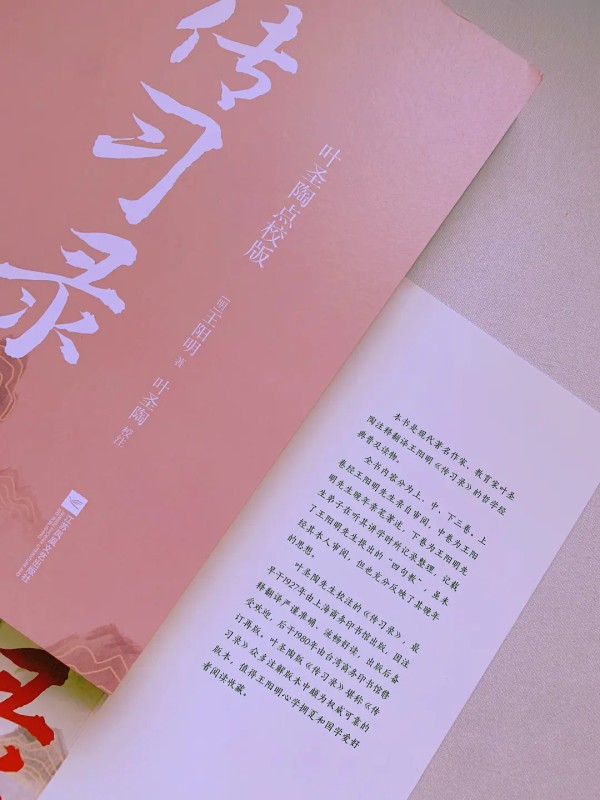 传习录
叶圣陶点校版
[明]王阳明 著
叶圣陶 校注
江苏凤凰文艺出版社
本书是现代著名作家、教育家叶圣
陶注释翻译王阳明《传习录》的哲学经
典普及读物。
全书内容分为上、中、下三卷。上
卷经王阳明先生亲自审阅，中卷为王阳
明先生晚年亲笔著述，下卷为王阳明先
生弟子在听其讲学时所记录整理，记载
了王阳明先生提出的“四句教”，虽未
经其本人审阅，但也充分反映了其晚年
的思想。
叶圣陶先生校注的《传习录》，最
早于1927年由上海商务印书馆出版，因注
释翻译严谨准确，流畅好读，出版后备
受欢迎，后于1980年由台湾商务印书馆修
订再版。叶圣陶版《传习录》堪称《传
习录》众多注解版本中颇为权威可靠的
版本，值得王阳明心学拥趸和国学爱好
者阅读收藏。